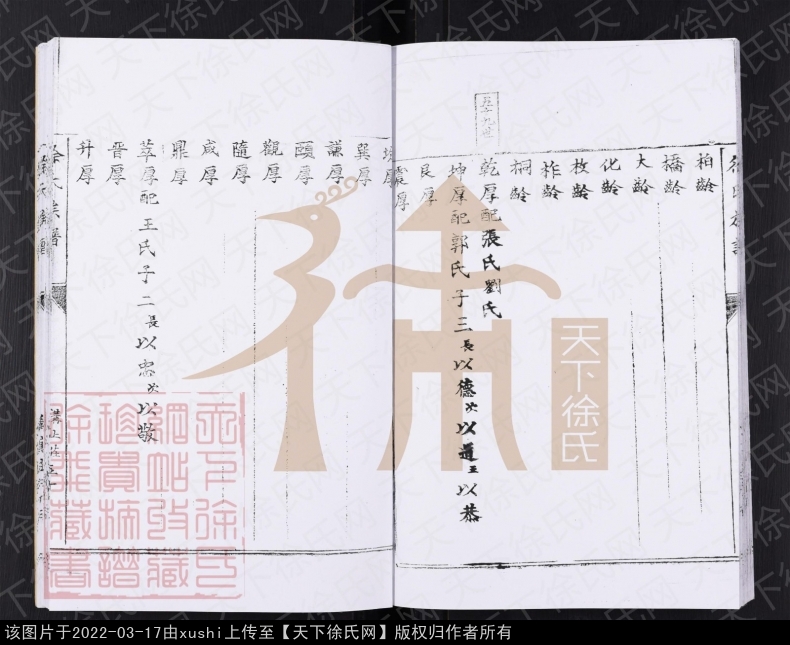 徐氏族譜
柏齡
橋齡
大齡
化齡
枚齡
柞齡
桐齡
乾厚配張氏劉氏
坤厚配郭氏子三長以德次以道三以恭
艮厚
震厚
巽厚
謙厚
頤厚
觀厚
隨厚
咸厚
鼎厚
萃厚配王氏子二長以忠次以敬
晋厚
升厚
徐氏族譜
天下徐氏
天下徐氏网
该图片于2022-03-17由xushi上传至【天下徐氏网】版权归作者所有